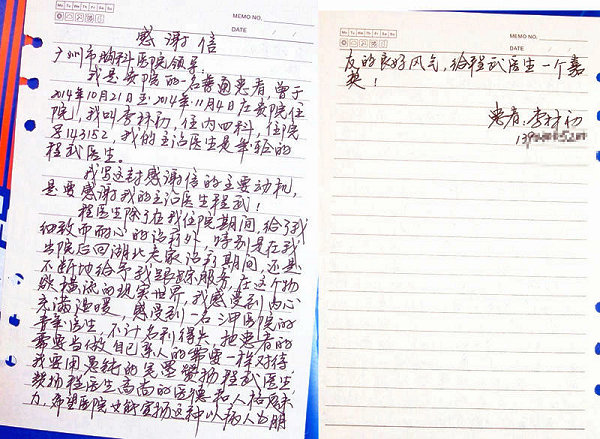 Mo Tu We Th Fr Sa Su
MEMO NO.
DATE
感谢信
广州市胸科医院领导:
我是贵院的一名普通患者,曾于
2014年10月21日至2014年11月4日在贵院住
院,我叫李林初,住内四科,住院
号143152,我的主治医生是年轻的
程武医生。
我写这封感谢信的主要动机,
是要感谢我的主治医生程武!
程医生除了在我住院期间,给了我
细致而耐心的治疗外,特别是在我
出院后回湖北老家治疗期间,还是
不断地给予我跟踪服务,在这个物
欲横流的现实世界,我感受到内心
充满温暖,感受到一名
青年医生,不计名利得失,把患者的
需要当做自己亲人的需要一样对待
我要用最纯的完要赞扬程武医生
赞扬程医生高尚的医德和人格魅
力,希望医院大能宣扬这种以病人为朋
Mo Tu We Th Fr Sa Su
MEMO NO.
DATE
友的良好风气,给程武医生一个嘉
奖!
患者:李林初